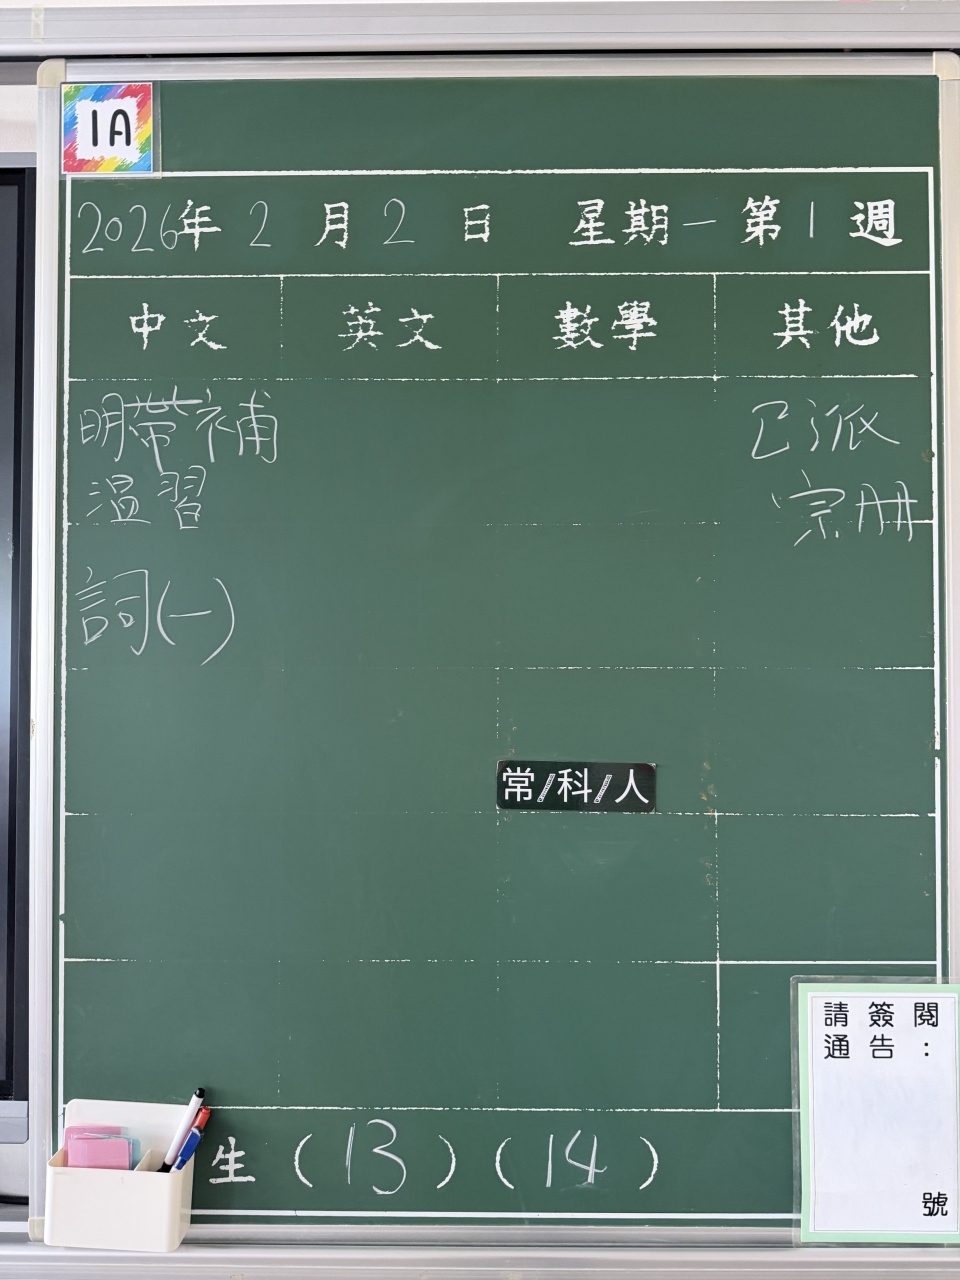 1A
2026年 2 月 2 日 星期一 第 1 週
中文 英文 數學 其他
明帶補
溫習
詞(一)
已派
宗冊
常/科/人
請簽閱
通告:
號
生 (13) (14)